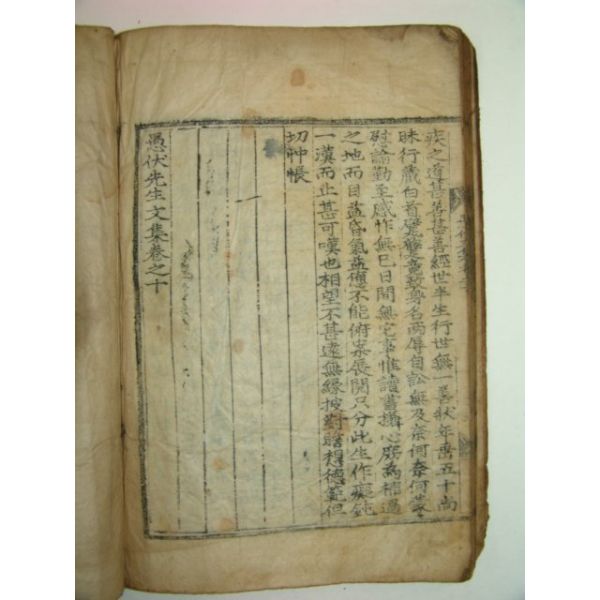 疾之道甚善甚善經世半生行世無一善狀年垂五十尚
昧行藏白首 身名兩辱自訟無及奈何奈何蒙
慰諭勤至感怍無已日間無它事惟讀書攝心庶爲補過
之地而目益昏氣益憊不能俯案展閱只分此生作癡鈍
一漢而止甚可嘆也相望不甚遠無緣披對瞻想德範但
切忡悵
愚伏先生文集卷之十